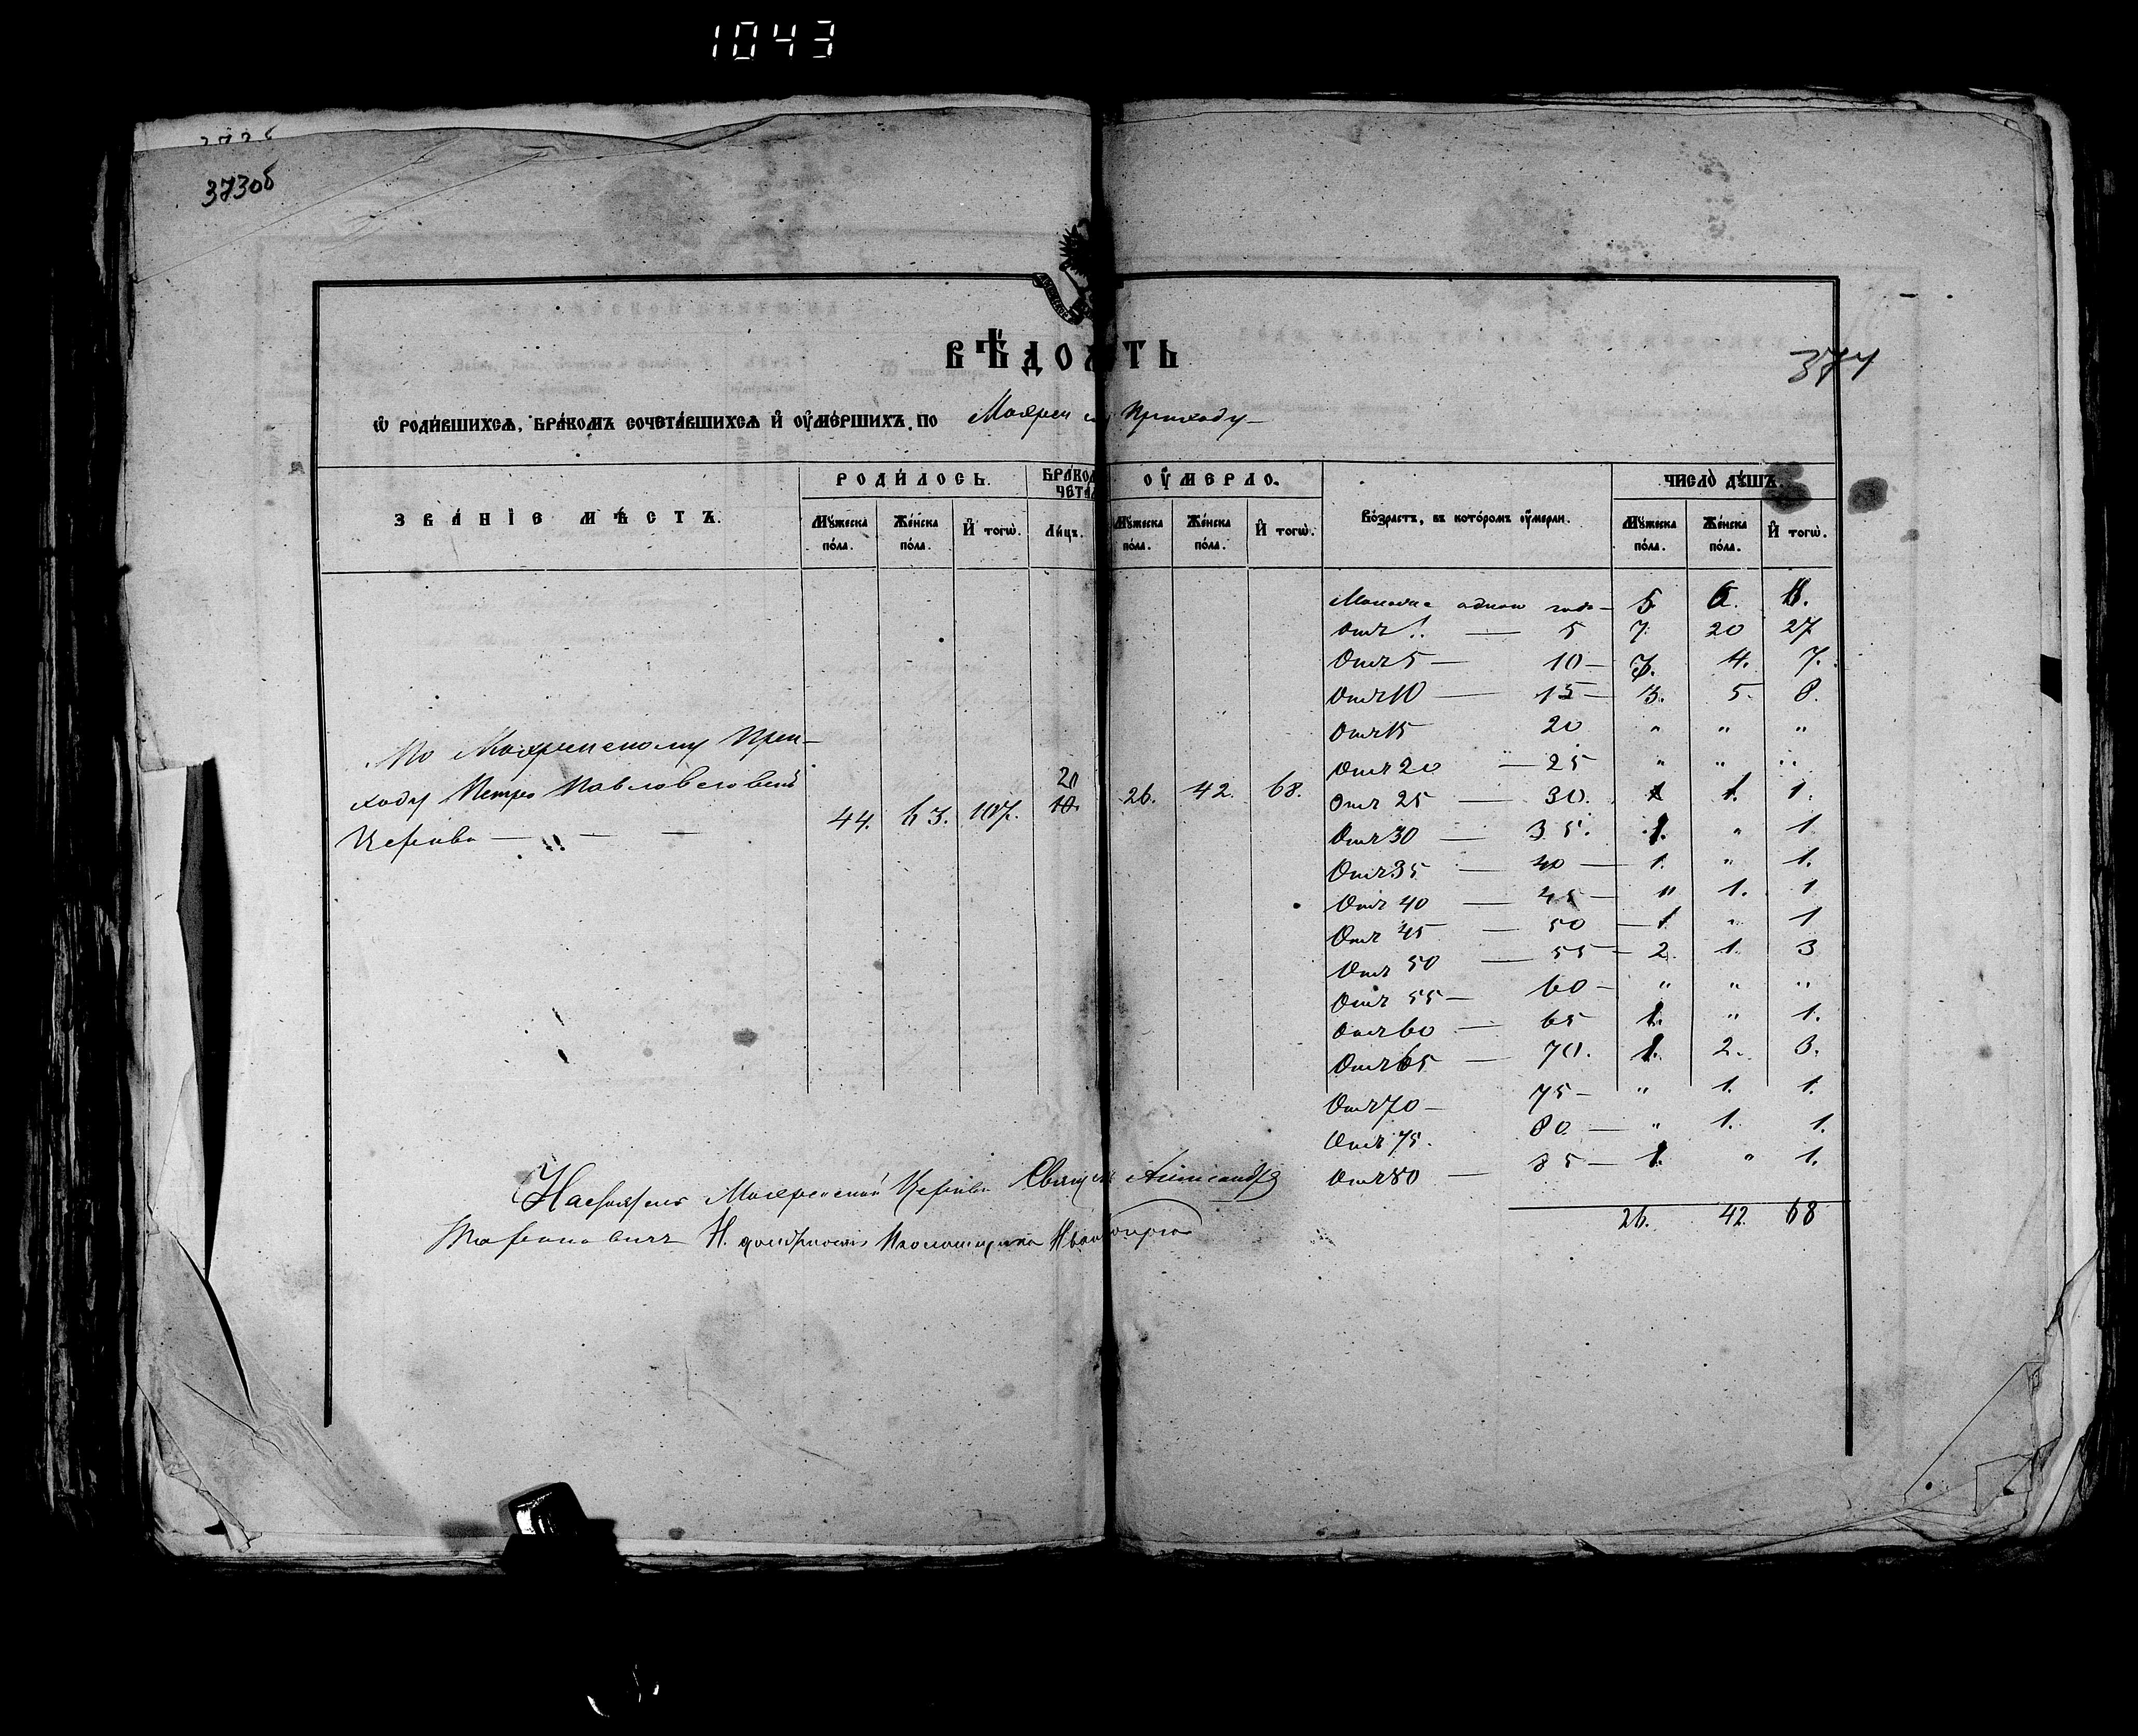 1043
373об
374
ВѢДОМОСТЬ
Ѡ РОДИВШИХСѦ, БРАКОМЪ СОЧЕТАВШИХСѦ И ОУМЕРШИХЪ, ПО Приходу
ЗВАНІЕ МѢСТЪ. РОДИЛОСЬ. БРАКОМ ЧЕТА ОУМЕРЛО. Возрастъ, въ которомъ оумерли. ЧИСЛО ДУШЪ.
Мужеска пола. Женска пола. И тогѡ. Лицъ. Мужеска пола. Женска пола. И тогѡ. Мужеска пола. Женска пола. И тогѡ.
Моложе одного года — 5 6. 11.
Отъ 1. — 5 7 20 27
Отъ 5 — 10 — 3. 4. 7.
Отъ 10 — 15 — 3. 5 8.
Отъ 15 20 " " "
Отъ 20 — 25 " " "
Отъ 25 — 30. " 1. 1.
Отъ 30 — 35. 1. " 1
Отъ 35 — 40 — 1. " 1.
Отъ 40 — 45 — " 1. 1
Отъ 45 — 50 — 1 " 1
Отъ 50 — 55 — 2 1. 3
Отъ 55 — 60 — " " "
Отъ 60 — 65 1. " 1.
Отъ 65 — 70. 1. 2. 3.
Отъ 70 — 75 — " 1. 1.
Отъ 75. 80 — " 1. 1.
Отъ 80 — 85 — 1. " 1.
26. 42 68
По При-
ходу Петро Павловской
Церкви — " — —
44. 63. 107. 20 26. 42. 68.
Настоятель Церкви Священ Александръ
И. должность Псаломщика